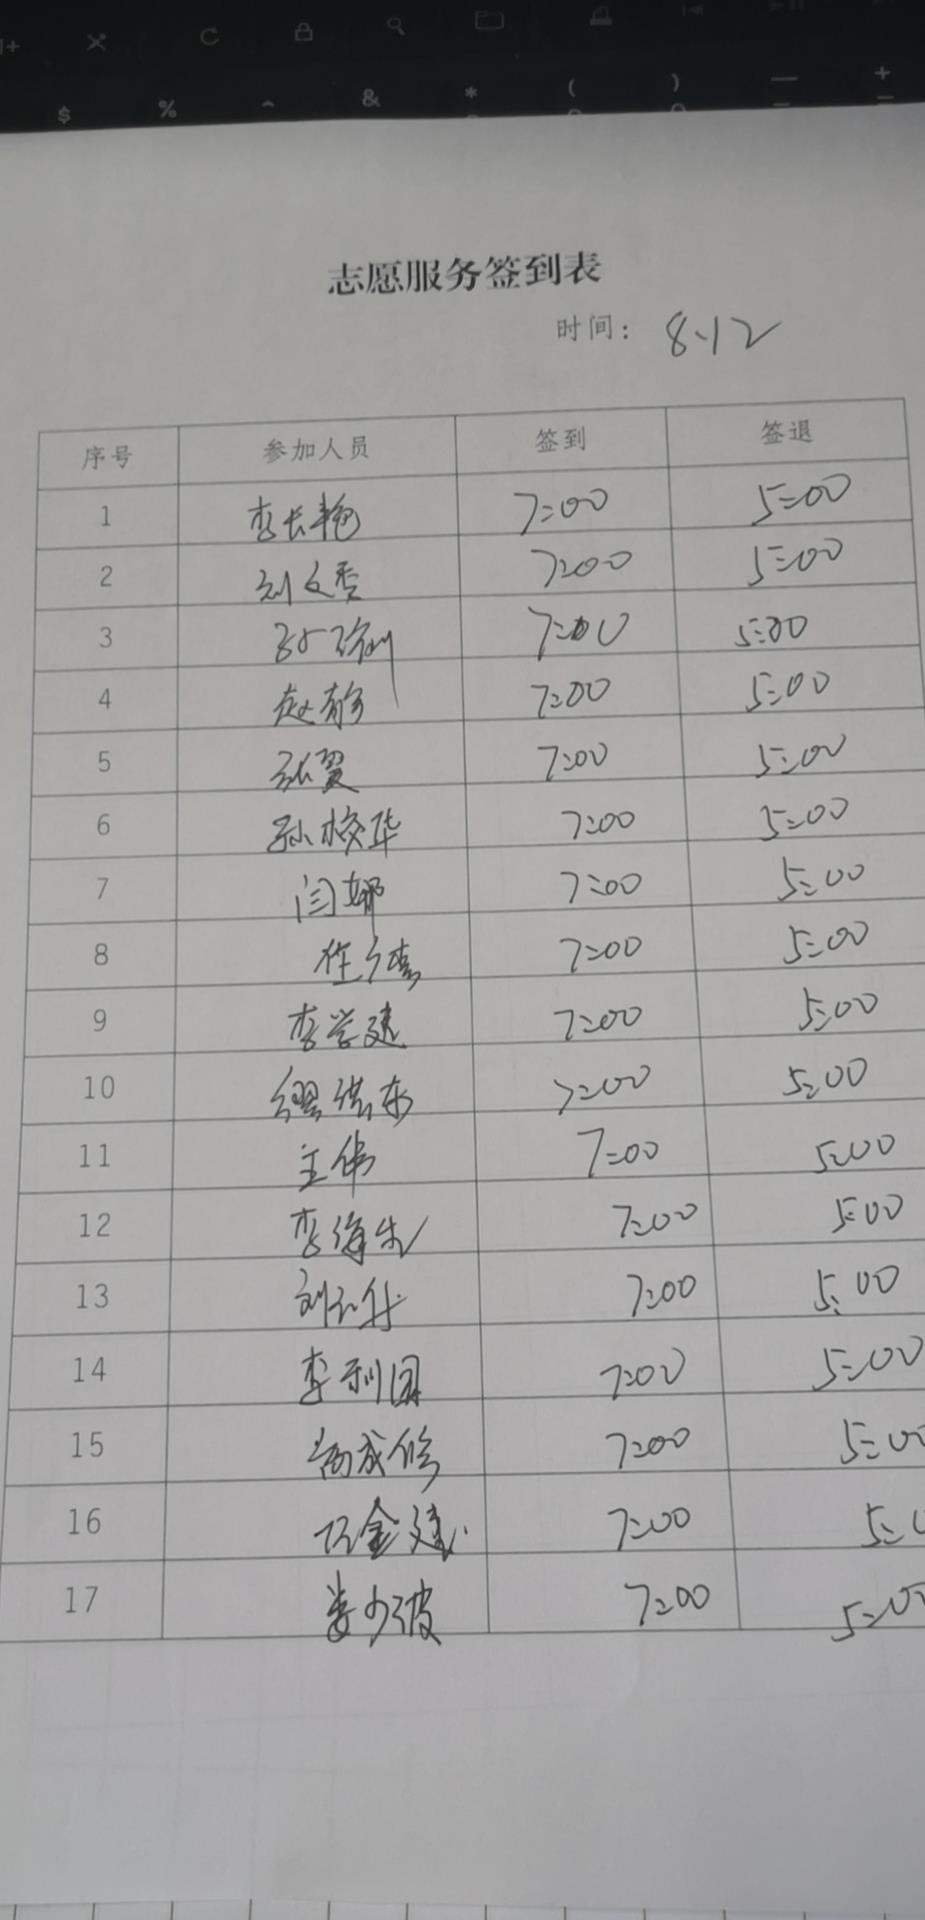 $ % ^ & * ( ) — +
志愿服务签到表
时间: 8.12
序号 参加人员 签到 签退
1 李长艳 7:00 5:00
2 刘文香 7:00 5:00
3 7:00 5:00
4 赵静 7:00 5:00
5 张翼 7:00 5:00
6 孙校华 7:00 5:00
7 闫娜 7:00 5:00
8 7:00 5:00
9 李学建 7:00 5:00
10 缪洪东 7:00 5:00
11 王伟 7:00 5:00
12 李海生 7:00 5:00
13 7:00 5:00
14 李利国 7:00 5:00
15 高成修 7:00 5:00
16 7:00
17 娄少波 7:00 5:00